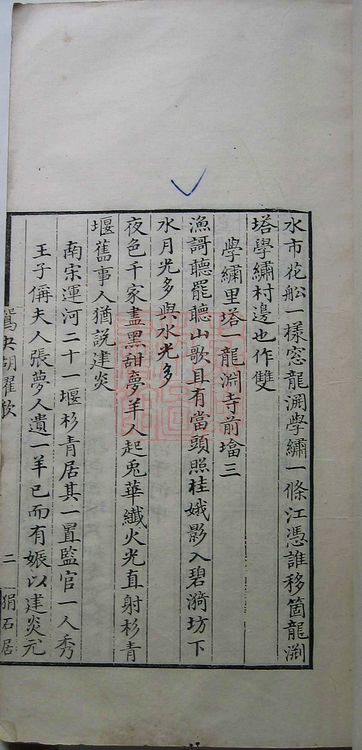 水市花船一樣窓龍淵學繡一條江憑誰移箇龍淵
塔學繡村邊也作雙
學繡里塔龍淵寺前墖三
漁謌聽罷聽山歌且有當頭照桂娥影入碧漪坊下
水月光多與水光多
夜色千家盡黑甜夢羊人起兎華纖火光直射杉青
堰舊事人猶說建炎
南宋運河二十一堰杉青居其一置監官一人秀
王子偁夫人張夢人遺一羊已而有娠以建炎元
鴛央胡
二
狷石居